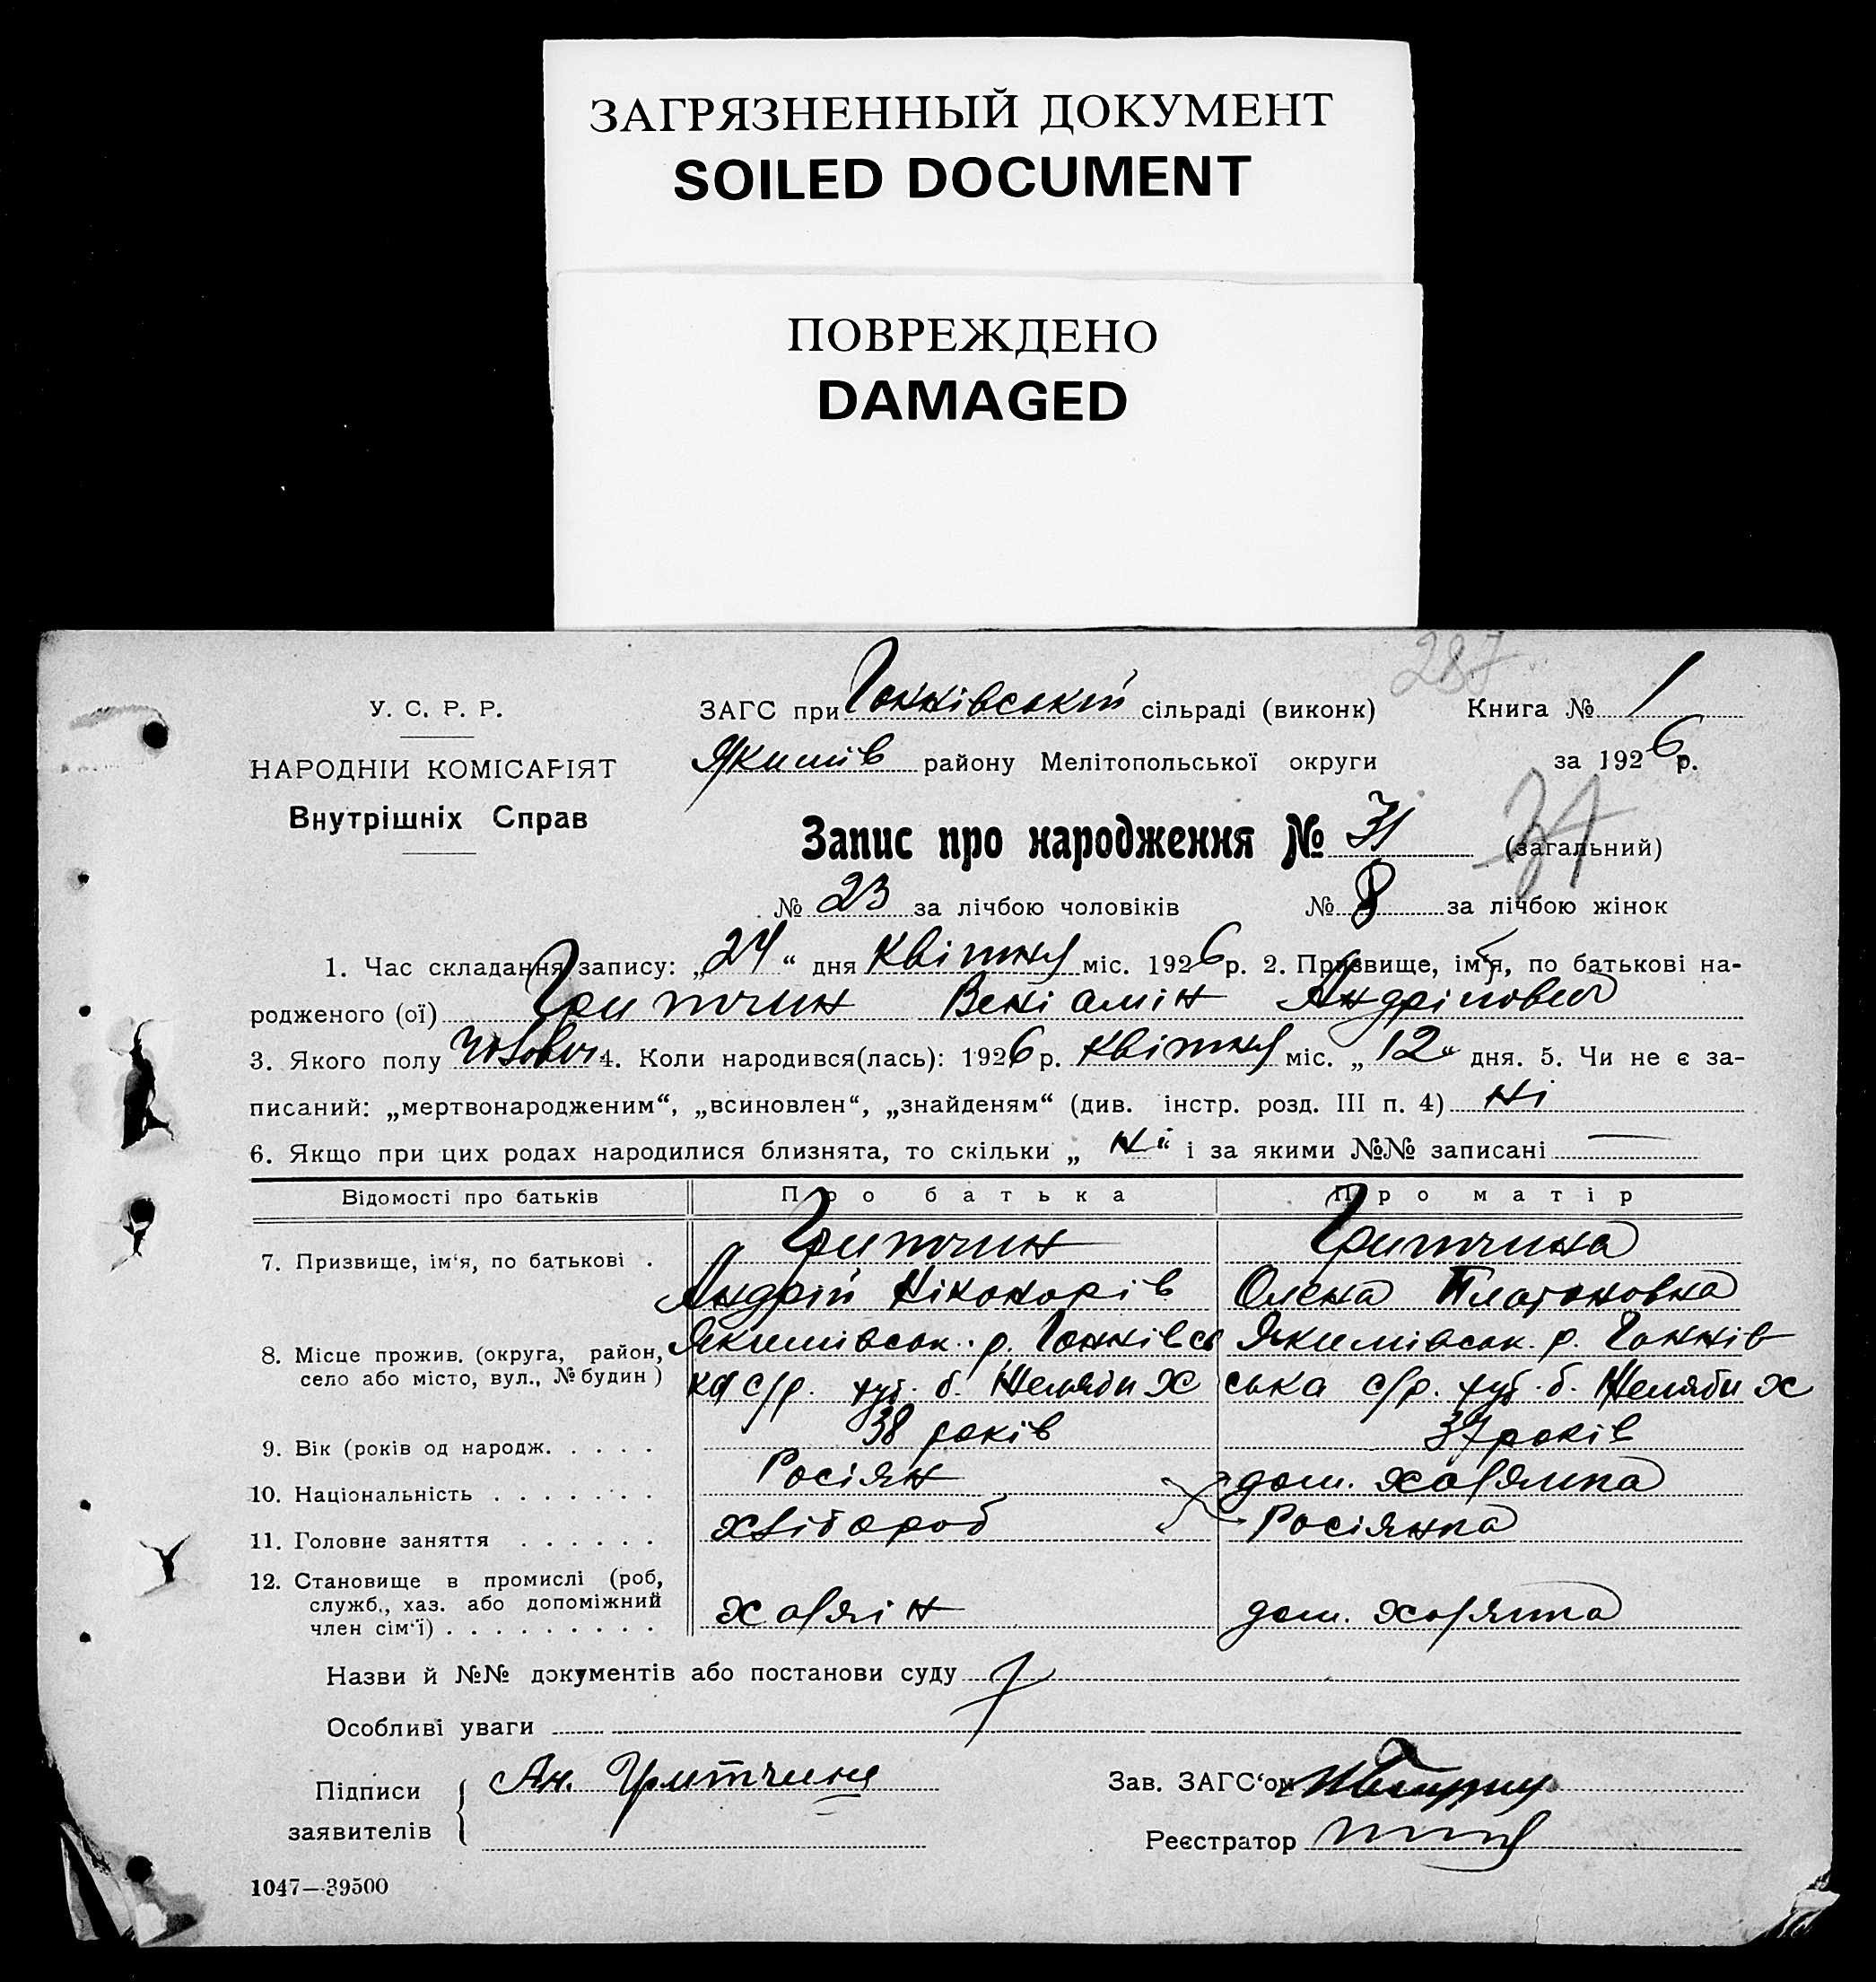 ЗАГРЯЗНЕННЫЙ ДОКУМЕНТ
SOILED DOCUMENT
ПОВРЕЖДЕНО
DAMAGED
287
У. С. Р. Р.
ЗАГС при Ганнівській сільраді (виконк) Книга № 1
НАРОДНІЙ КОМІСАРІЯТ
Якимів району Мелітопольської округи за 1926 р.
Внутрішніх Справ
Запис про народження № 31 (загальний)
№ 23 за лічбою чоловіків № 8 за лічбою жінок
1. Час складання запису: „24“ дня Квітня міс. 1926 р. 2. Призвище, ім'я, по батькові на-
родженого (ої) Гритчин Веніамін Андрійович
3. Якого полу 4. Коли народився(лась): 1926 р. Квітня міс. „12“ дня. 5. Чи не є за-
писаний: „мертвонародженим“, „всиновлен“, „знайденям“ (див. інстр. розд. III п. 4) Ні
6. Якщо при цих родах народилися близнята, то скільки „Ні“ і за якими №№ записані —
Відомості про батьків Про батька Про матір
7. Призвище, ім'я, по батькові . Гритчин Гритчина
Андрій Ніконорів Олена Платоновна
8. Місце прожив. (округа, район, Якимівськ. р. Ганнівсь Якимівськ. р. Ганнів
село або місто, вул., № будин) ка с/р. хут. б. ська с/р. хут. б.
9. Вік (років од народж. . . . . 38 років 37 років
10. Національність . . . . . . . Росіян дом. хазяйка
11. Головне заняття . . . . . . хлібороб Росіянка
12. Становище в промислі (роб,
служб., хаз. або допоміжний хазяін дом. хазяйка
член сім'ї) . . . . . . . . .
Назви й №№ документів або постанови суду
Особливі уваги
Підписи Ан. Гритчина Зав. ЗАГС'ом
заявителів Реєстратор
1047—39500